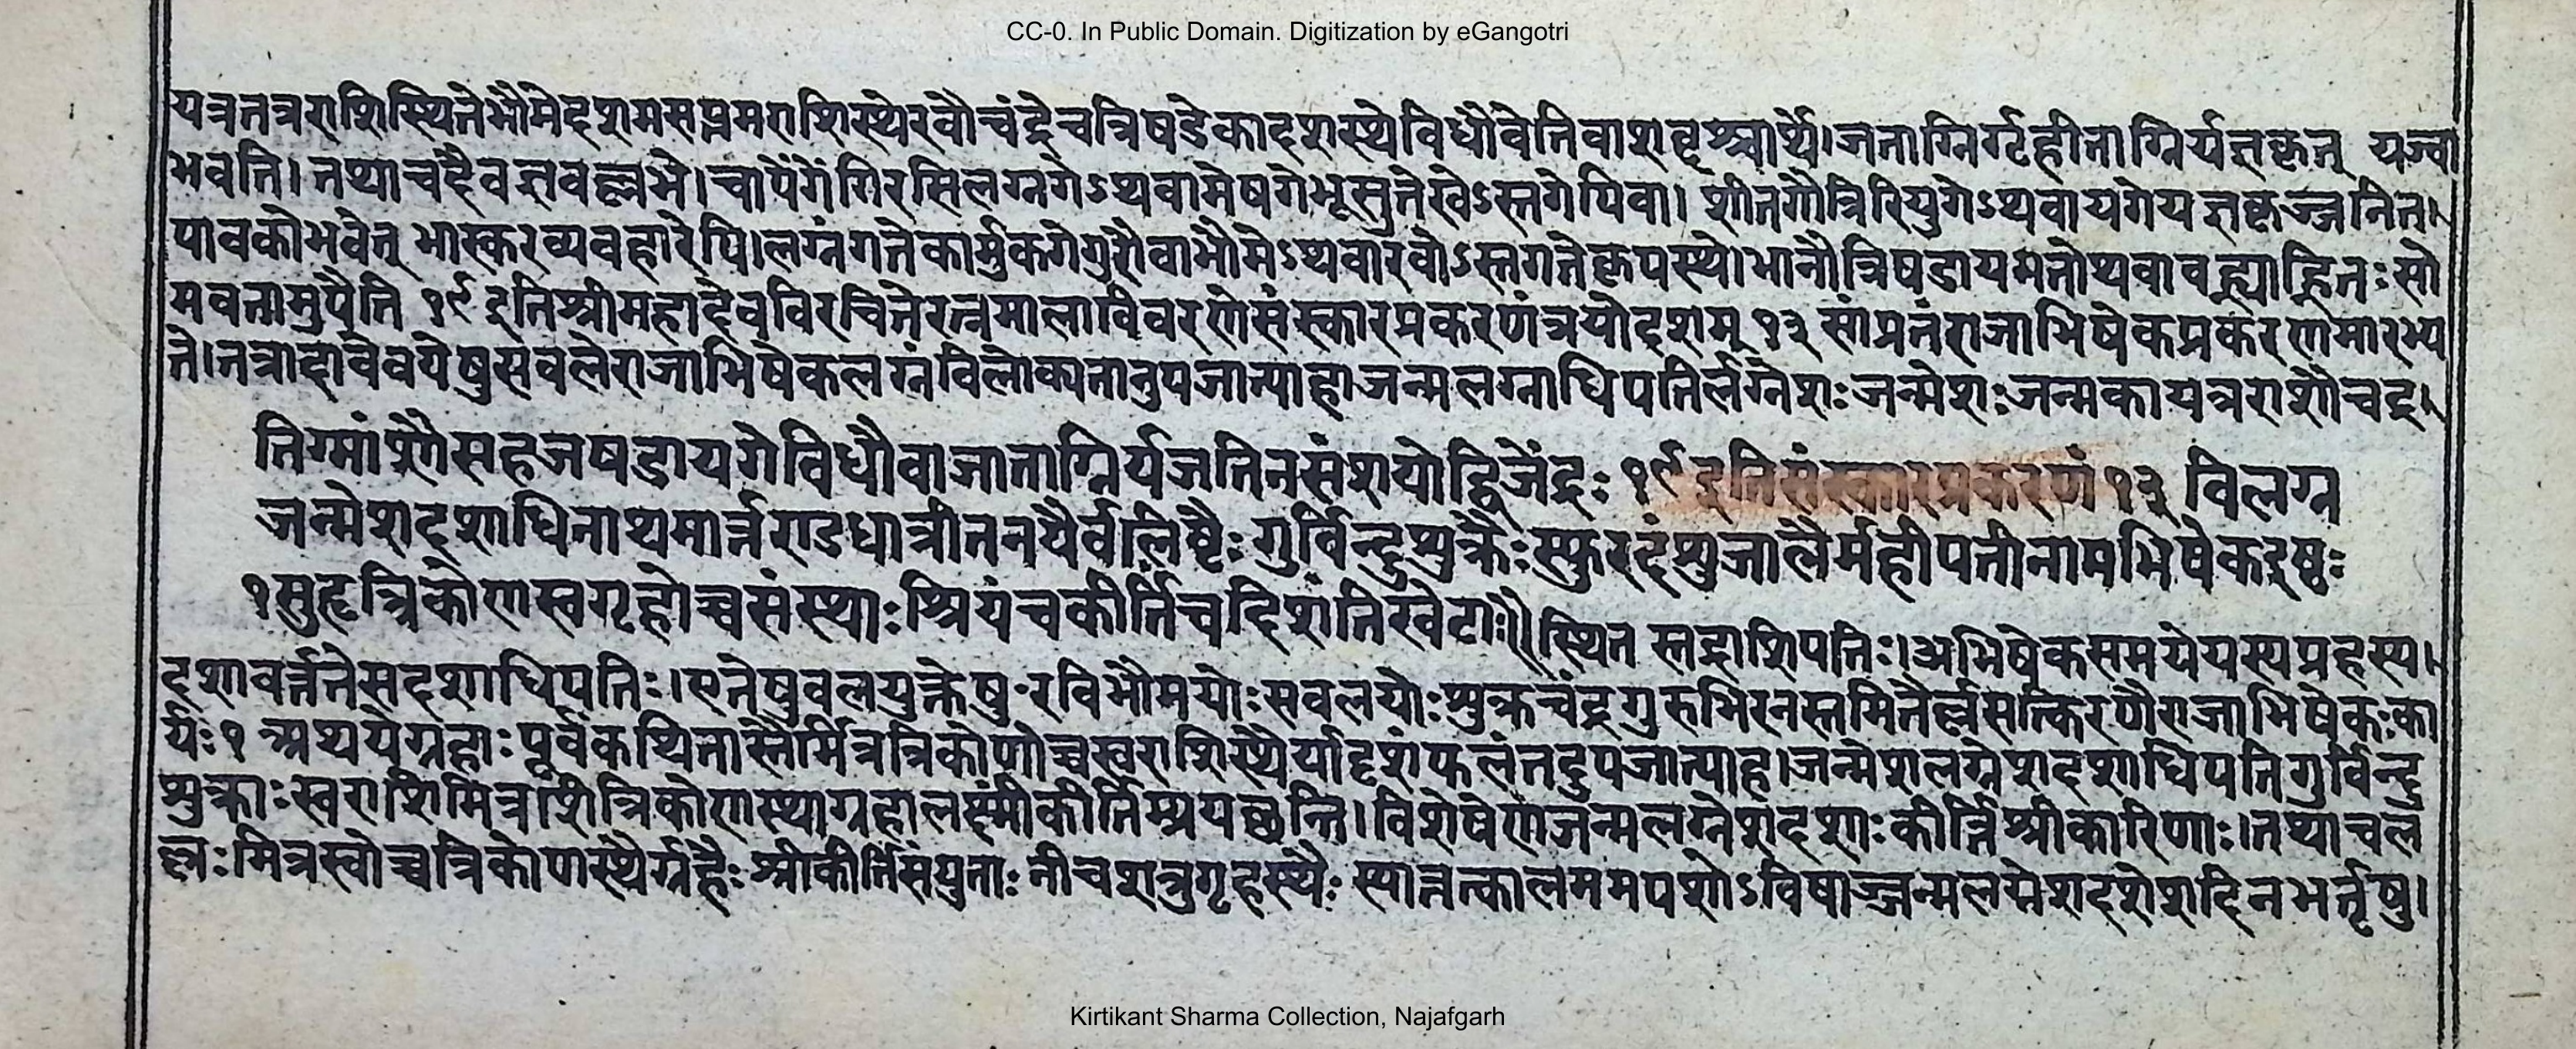 CC-0. In Public Domain. Digitization by eGangotri
यत्रतत्रराशिस्थितेभौमेदशमसप्तमराशिस्थेरवौचंद्रेचत्रिषडेकादशस्थेविधौवेतिवाशब्दश्चार्थे।जाताग्निर्गृहीताग्निर्यज्ञकृत् यज्वा
भवति। तथाचदैवज्ञवल्लभे। चापेंगेंगिरसिलग्नगेऽथवामेषगेभूसुतेखेऽस्तगेपिवा। शीतगौत्रिरिपुगेऽथवायगेयज्ञकृज्जनित।
पावकोभवेत् भास्करव्यवहारेपि।लग्नंगतेकार्मुकगेगुरौवाभौमेऽथवारवौऽस्तगतेकृपस्थे।भानौत्रिषडायमतोथवावह्न्याहितःसो
मवतामुपैति १९ इतिश्रीमहादेवविरचितेरत्नमालाविवरणेसंस्कारप्रकरणंत्रयोदशम् १३ सांप्रतंराजाभिषेकप्रकरणमारभ्य
ते।तत्रादावेवयेषुसबलेराजाभिषेकलग्नंविलोक्यतानुपजात्याह।जन्मलग्नाधिपतिर्लग्नेशःजन्मेशःजन्मकायत्रराशौचद्र।
तिग्मांशौसहजषडायगेविधौवाजाताग्निर्यजतिनसंशयोद्विजेंद्रः १९ इतिसंस्कारप्रकरणं १३ विलग्न
जन्मेशदशाधिनाथमार्त्तराडधात्रीतनयैर्वलिष्टैः गुर्विन्दुशुक्रैःस्फुरदंशुजालैर्महीपतीनामभिषेकइष्टः
१ सुहृत्रिकोणस्वगृहोच्चसंस्थाःश्रियंचकीर्तिंचदिशंतिखेटाः॥ स्थित स्तद्राशिपतिः।अभिषेकसमयेयस्यग्रहस्य।
दशावर्त्ततेसदशाधिपतिः।एतेषुवलयुक्तेषु रविभौमयोःसवलयोःशुक्रचंद्रगुरुभिरनस्तमितैर्ल्लसत्किरणैराजाभिषेकःका
र्यः १ अथयेग्रहाःपूर्वंकथितास्तैर्मित्रत्रिकोणोच्चस्वराशिस्थैर्यादृशंफलंतदुपजात्याह।जन्मेशलग्नेशदशाधिपतिगुर्विन्दु
शुक्राःस्वराशिमित्रराशीत्रिकोणस्थाग्रहालक्ष्मीकीर्तिम्प्रयच्छन्ति। विशेषेणजन्मलग्नेशदशाःकीर्त्तिश्रीकारिणाः।तथाचल
ल्लःमित्रस्वोच्चत्रिकोणस्थैर्ग्रहैःश्रीकीर्तिसंयुताः नीचशत्रुगृहस्थैः स्यात्तत्कालममपशोऽविषाज्जन्मलग्नेशदशेशदिनभर्तृषु।
Kirtikant Sharma Collection, Najafgarh